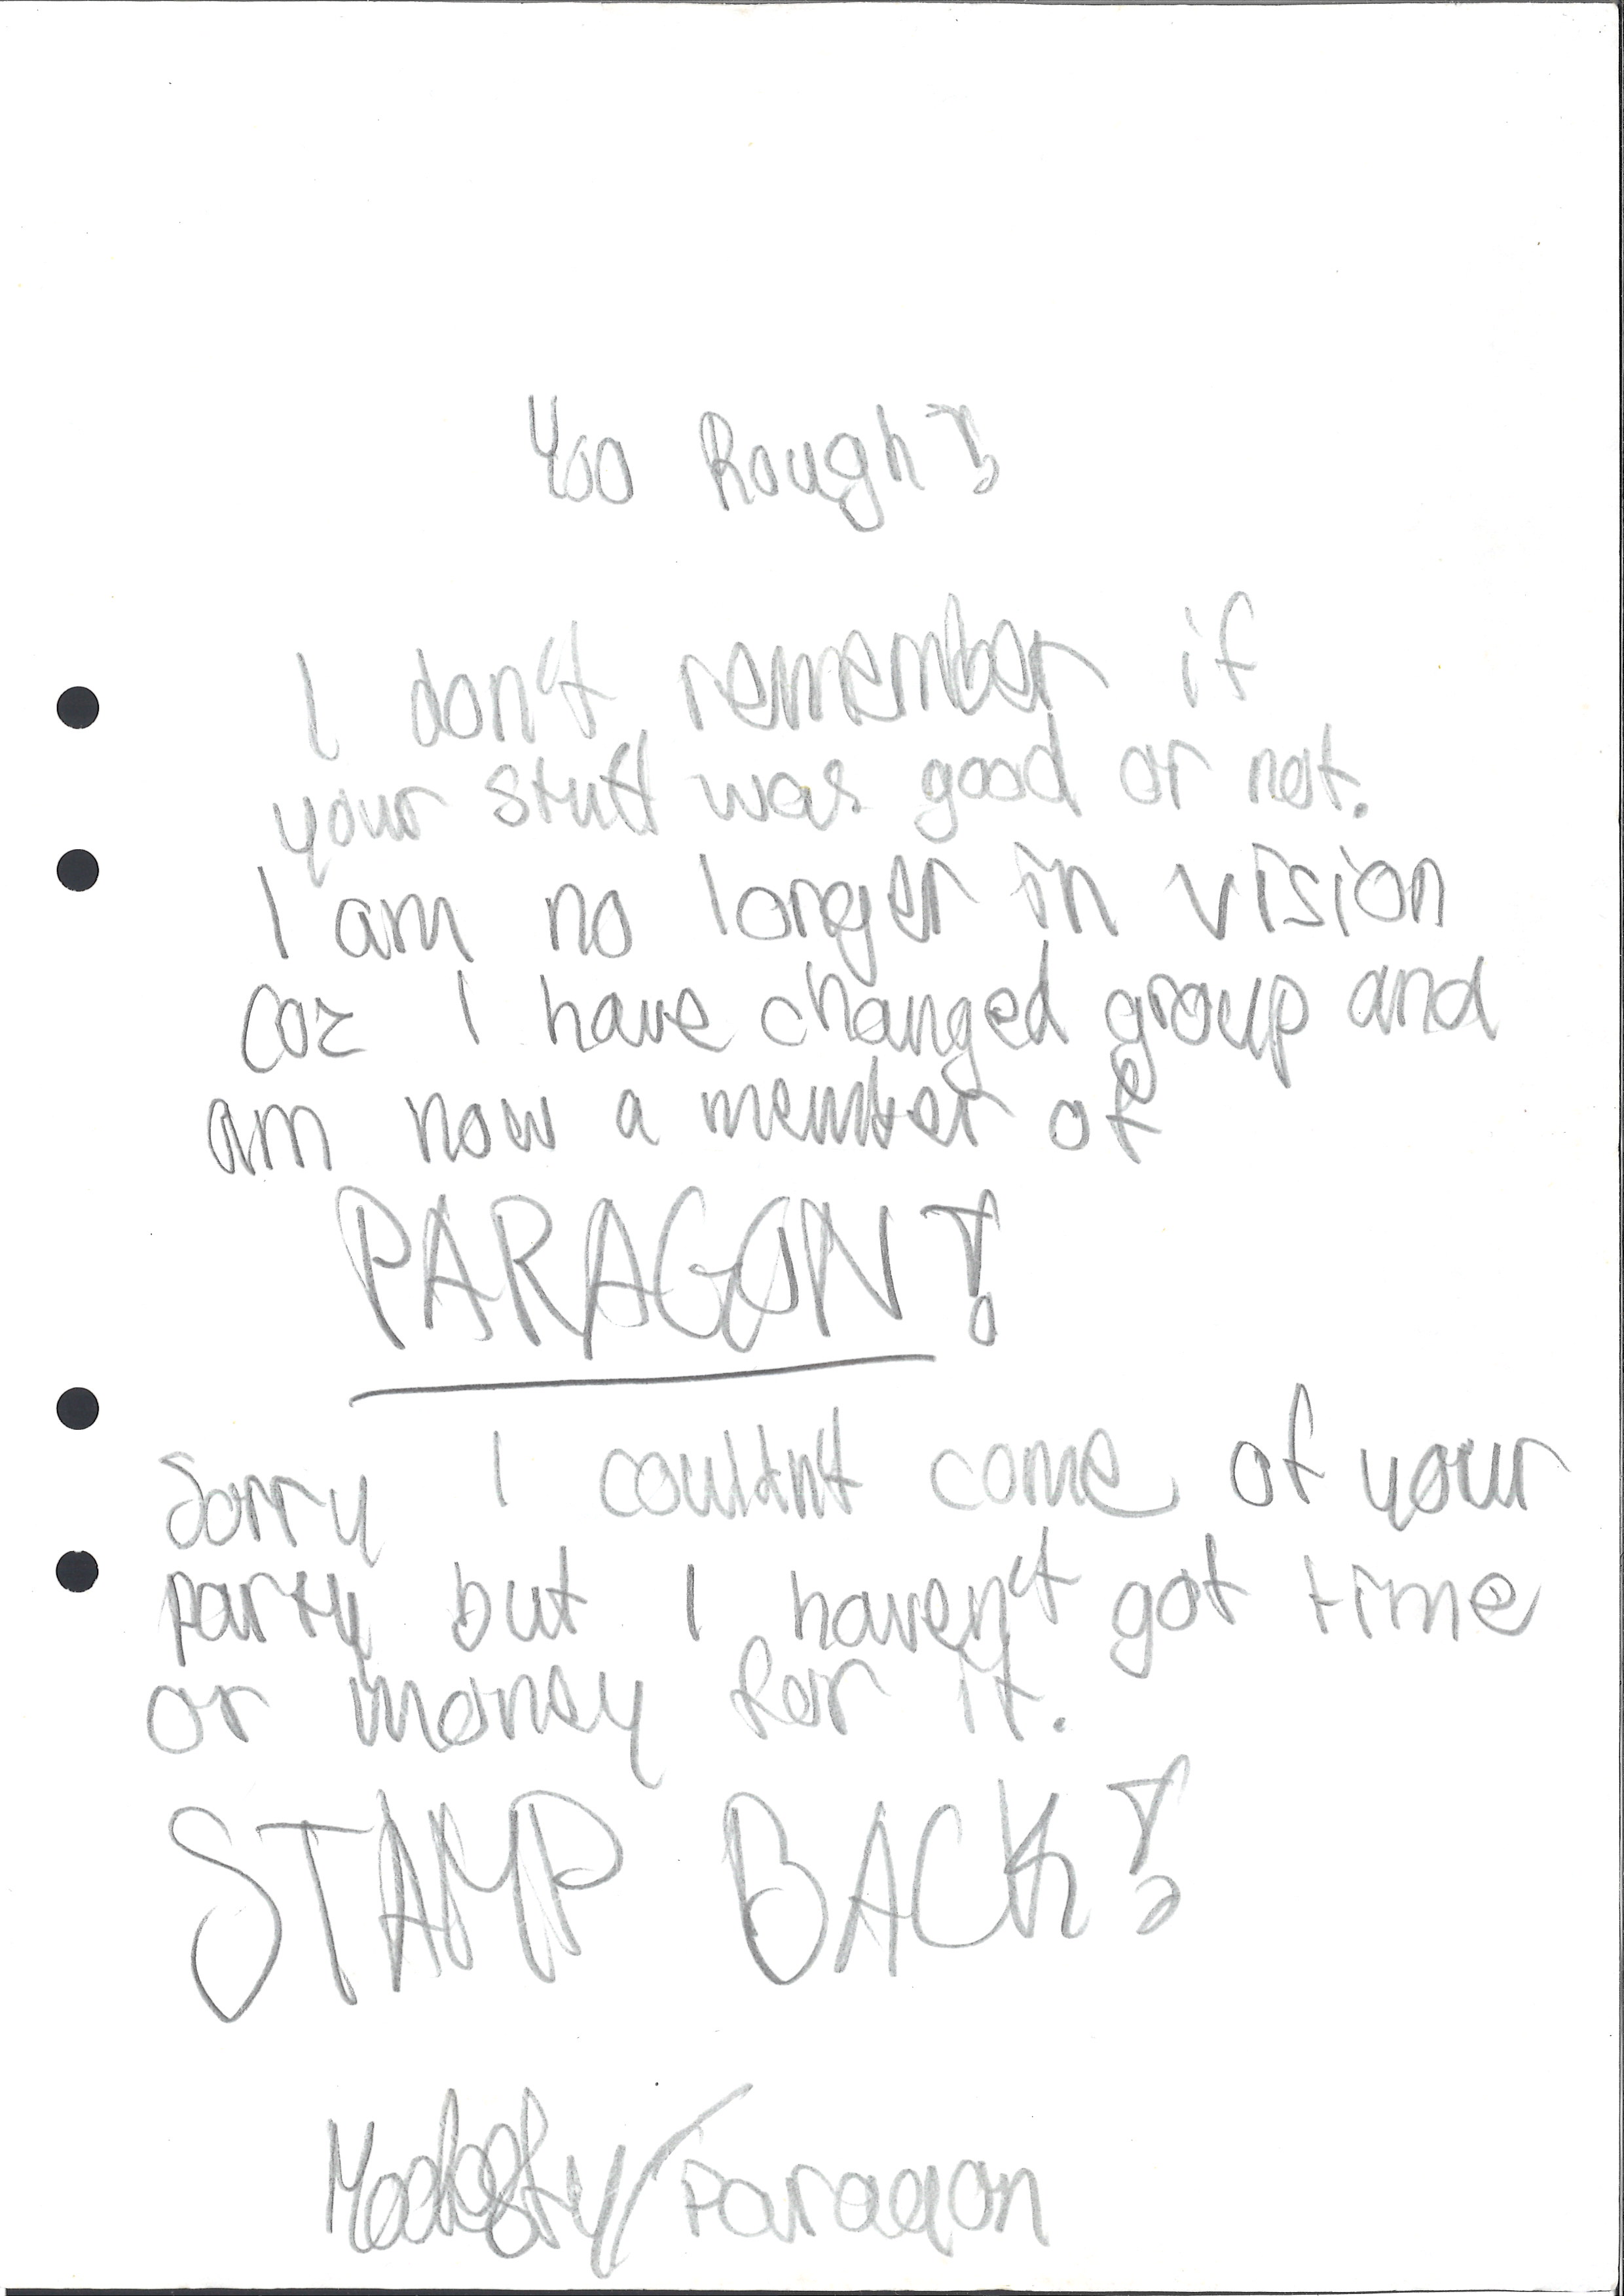 Yoo Rough!
I don't remember if
your stuff was good or not.
I am no longer in vision
coz I have changed group and
am now a member of
PARAGON!
Sorry I couldn't come of your
party but I haven't got time
or money for it.
STAMP BACK!
Modesty/Paragon